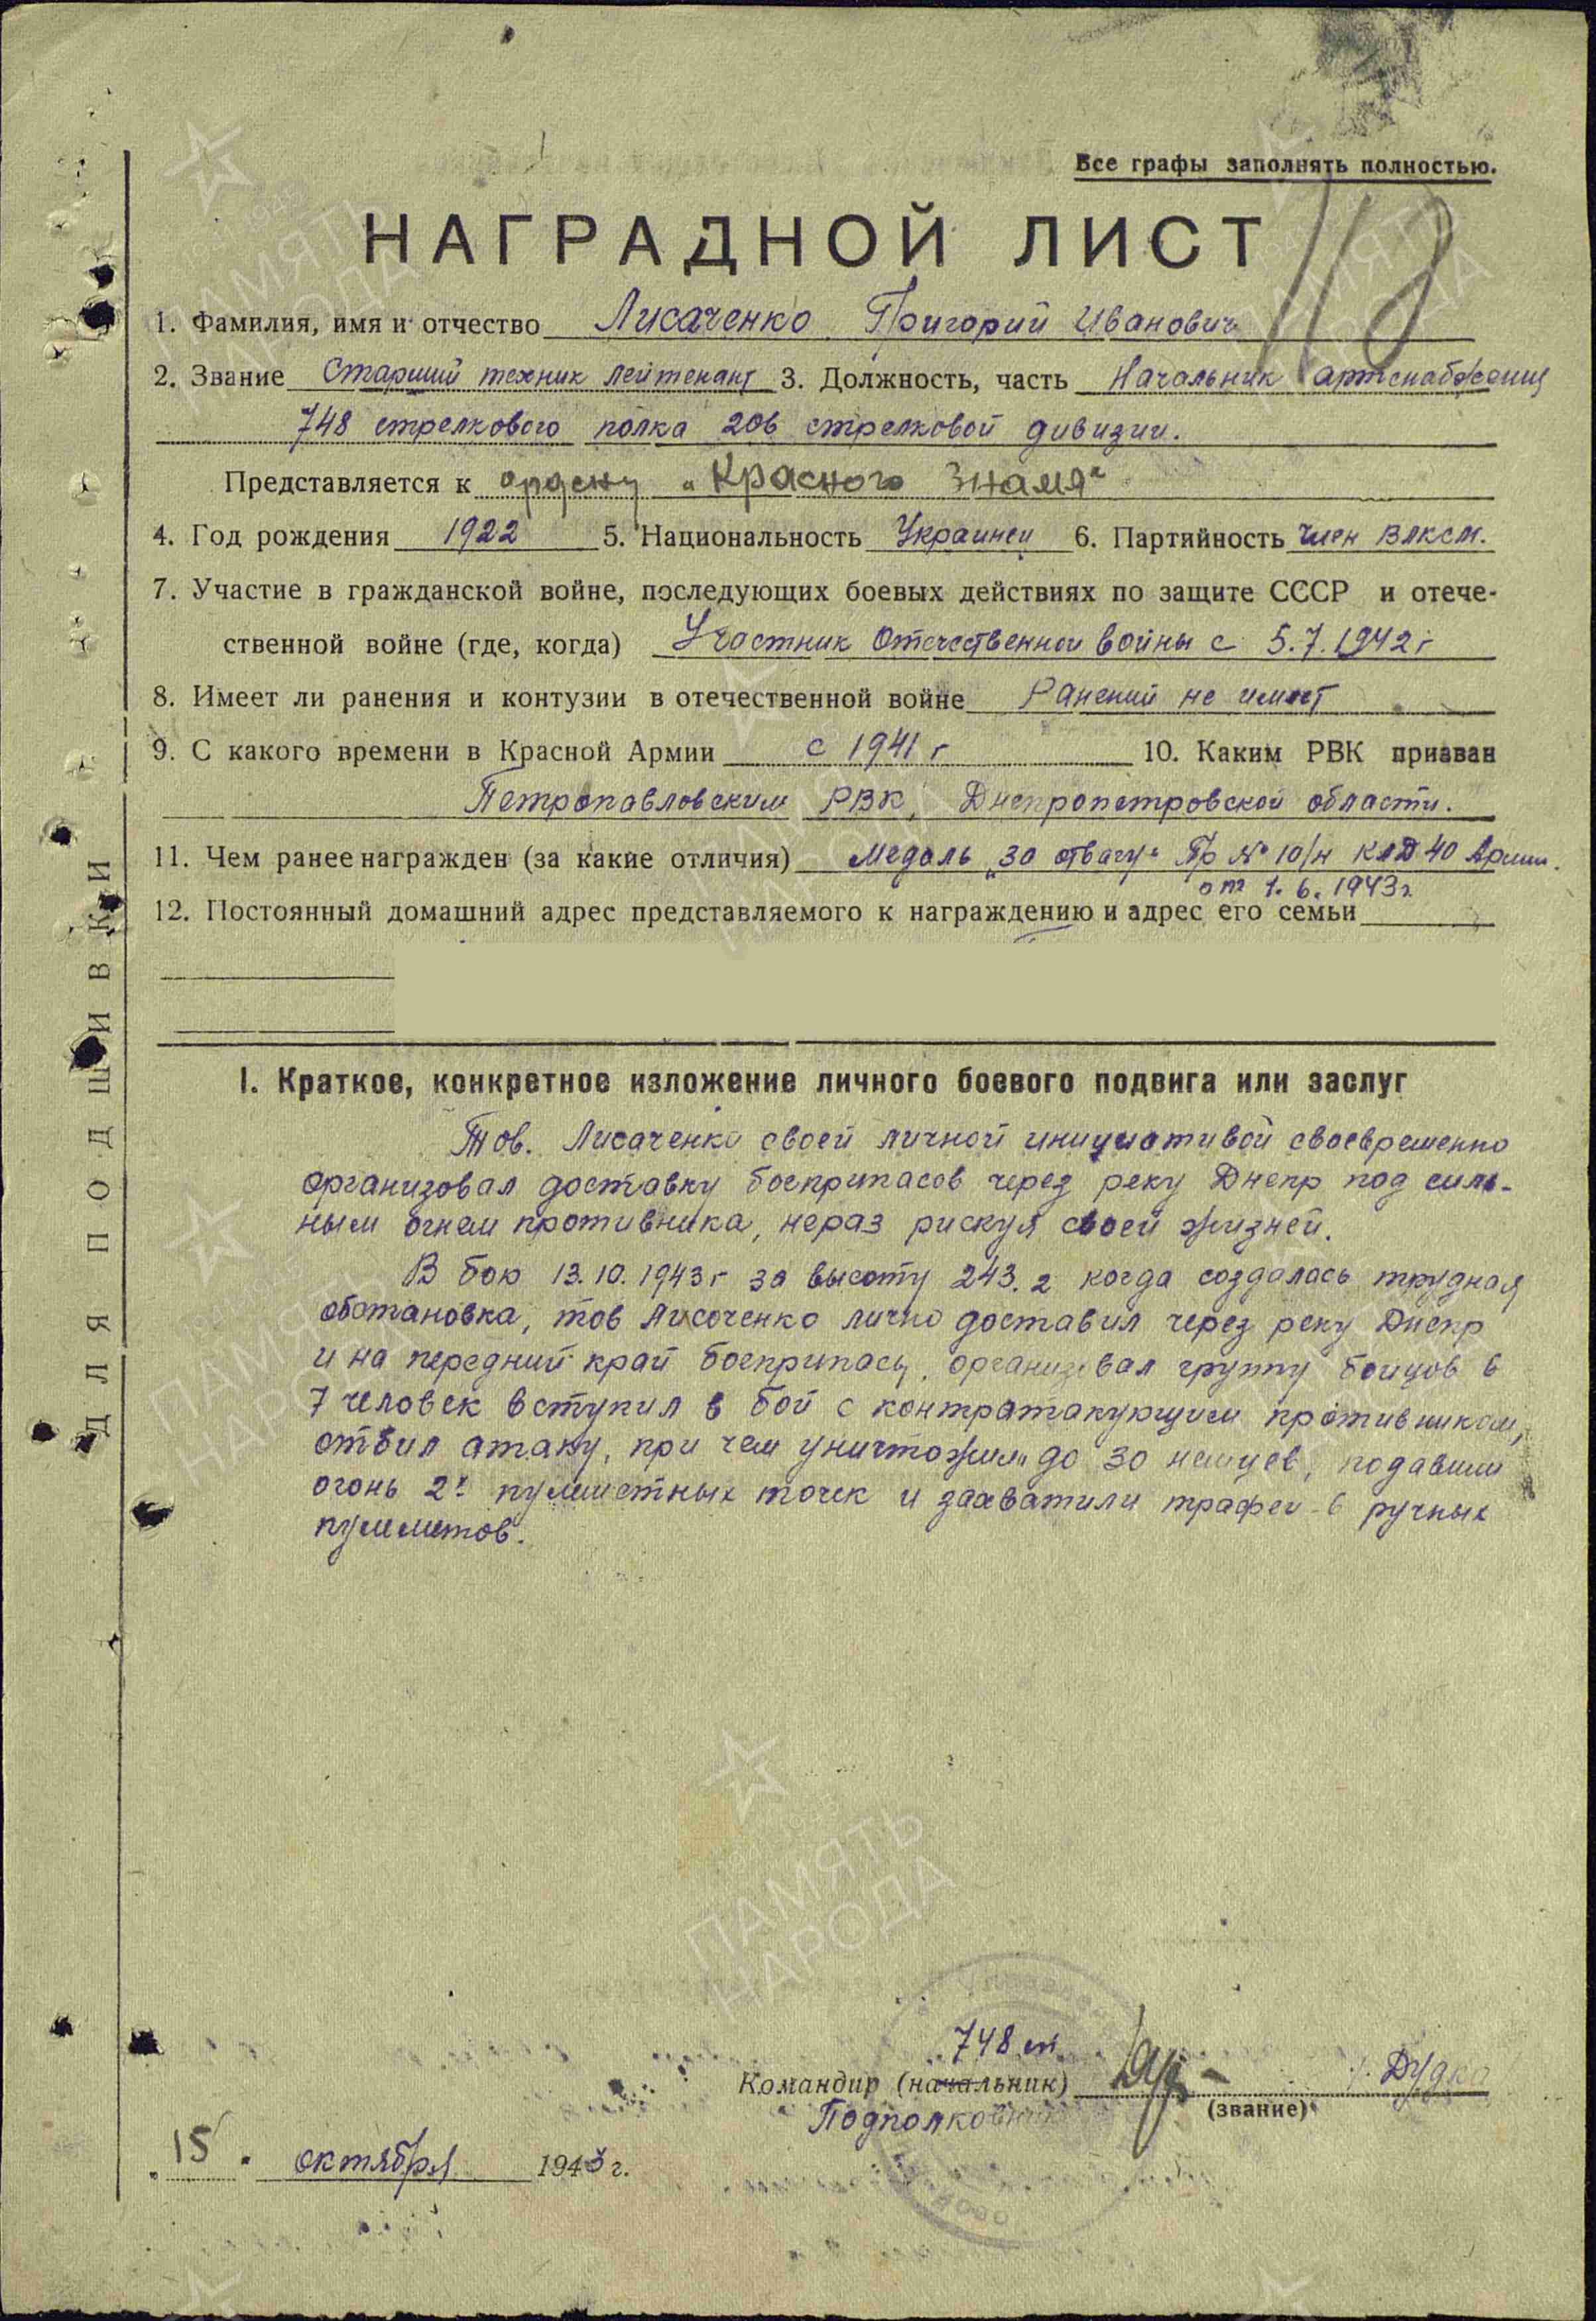 Все графы заполнять полностью.
НАГРАДНОЙ ЛИСТ
118
1. Фамилия, имя и отчество Лисаченко Григорий Иванович
2. Звание Старший техник лейтенант 3. Должность, часть Начальник артснабжения
748 стрелкового полка 206 стрелковой дивизии.
Представляется к ордену „Красного Знамя"
4. Год рождения 1922 5. Национальность Украинец 6. Партийность член ВЛКСМ.
7. Участие в гражданской войне, последующих боевых действиях по защите СССР и отече-
ственной войне (где, когда) Участник Отечественной войны с 5.7.1942 г
8. Имеет ли ранения и контузии в отечественной войне Ранений не имеет
9. С какого времени в Красной Армии с 1941 г 10. Каким РВК призван
Петропавловским РВК, Днепропетровской области.
11. Чем ранее награжден (за какие отличия) медаль „за отвагу" Пр № 10/н 40 Армии.
от 1.6.1943г.
12. Постоянный домашний адрес представляемого к награждению и адрес его семьи
I. Краткое, конкретное изложение личного боевого подвига или заслуг
Тов. Лисаченко своей личной инициативой своевременно
организовал доставку боеприпасов через реку Днепр под силь-
ным огнем противника, нераз рискуя своей жизней.
В бою 13.10.1943 г за высоту 243.2 когда создалась трудная
обстановка, тов Лисоченко лично доставил через реку Днепр
и на передний край боеприпасы, организовал группу бойцов в
7 человек вступил в бой с контратакующим противником,
отбил атаку, при чем уничтожили до 30 немцев, подавили
огонь 2х пулеметных точек и захватили трофеи - 6 ручных
пулеметов.
748 сп
Командир (начальник) Дудка
Подполковник (звание)
„15" октября 1943 г.
ДЛЯ ПОДШИВКИ
ПАМЯТЬ
НАРОДА